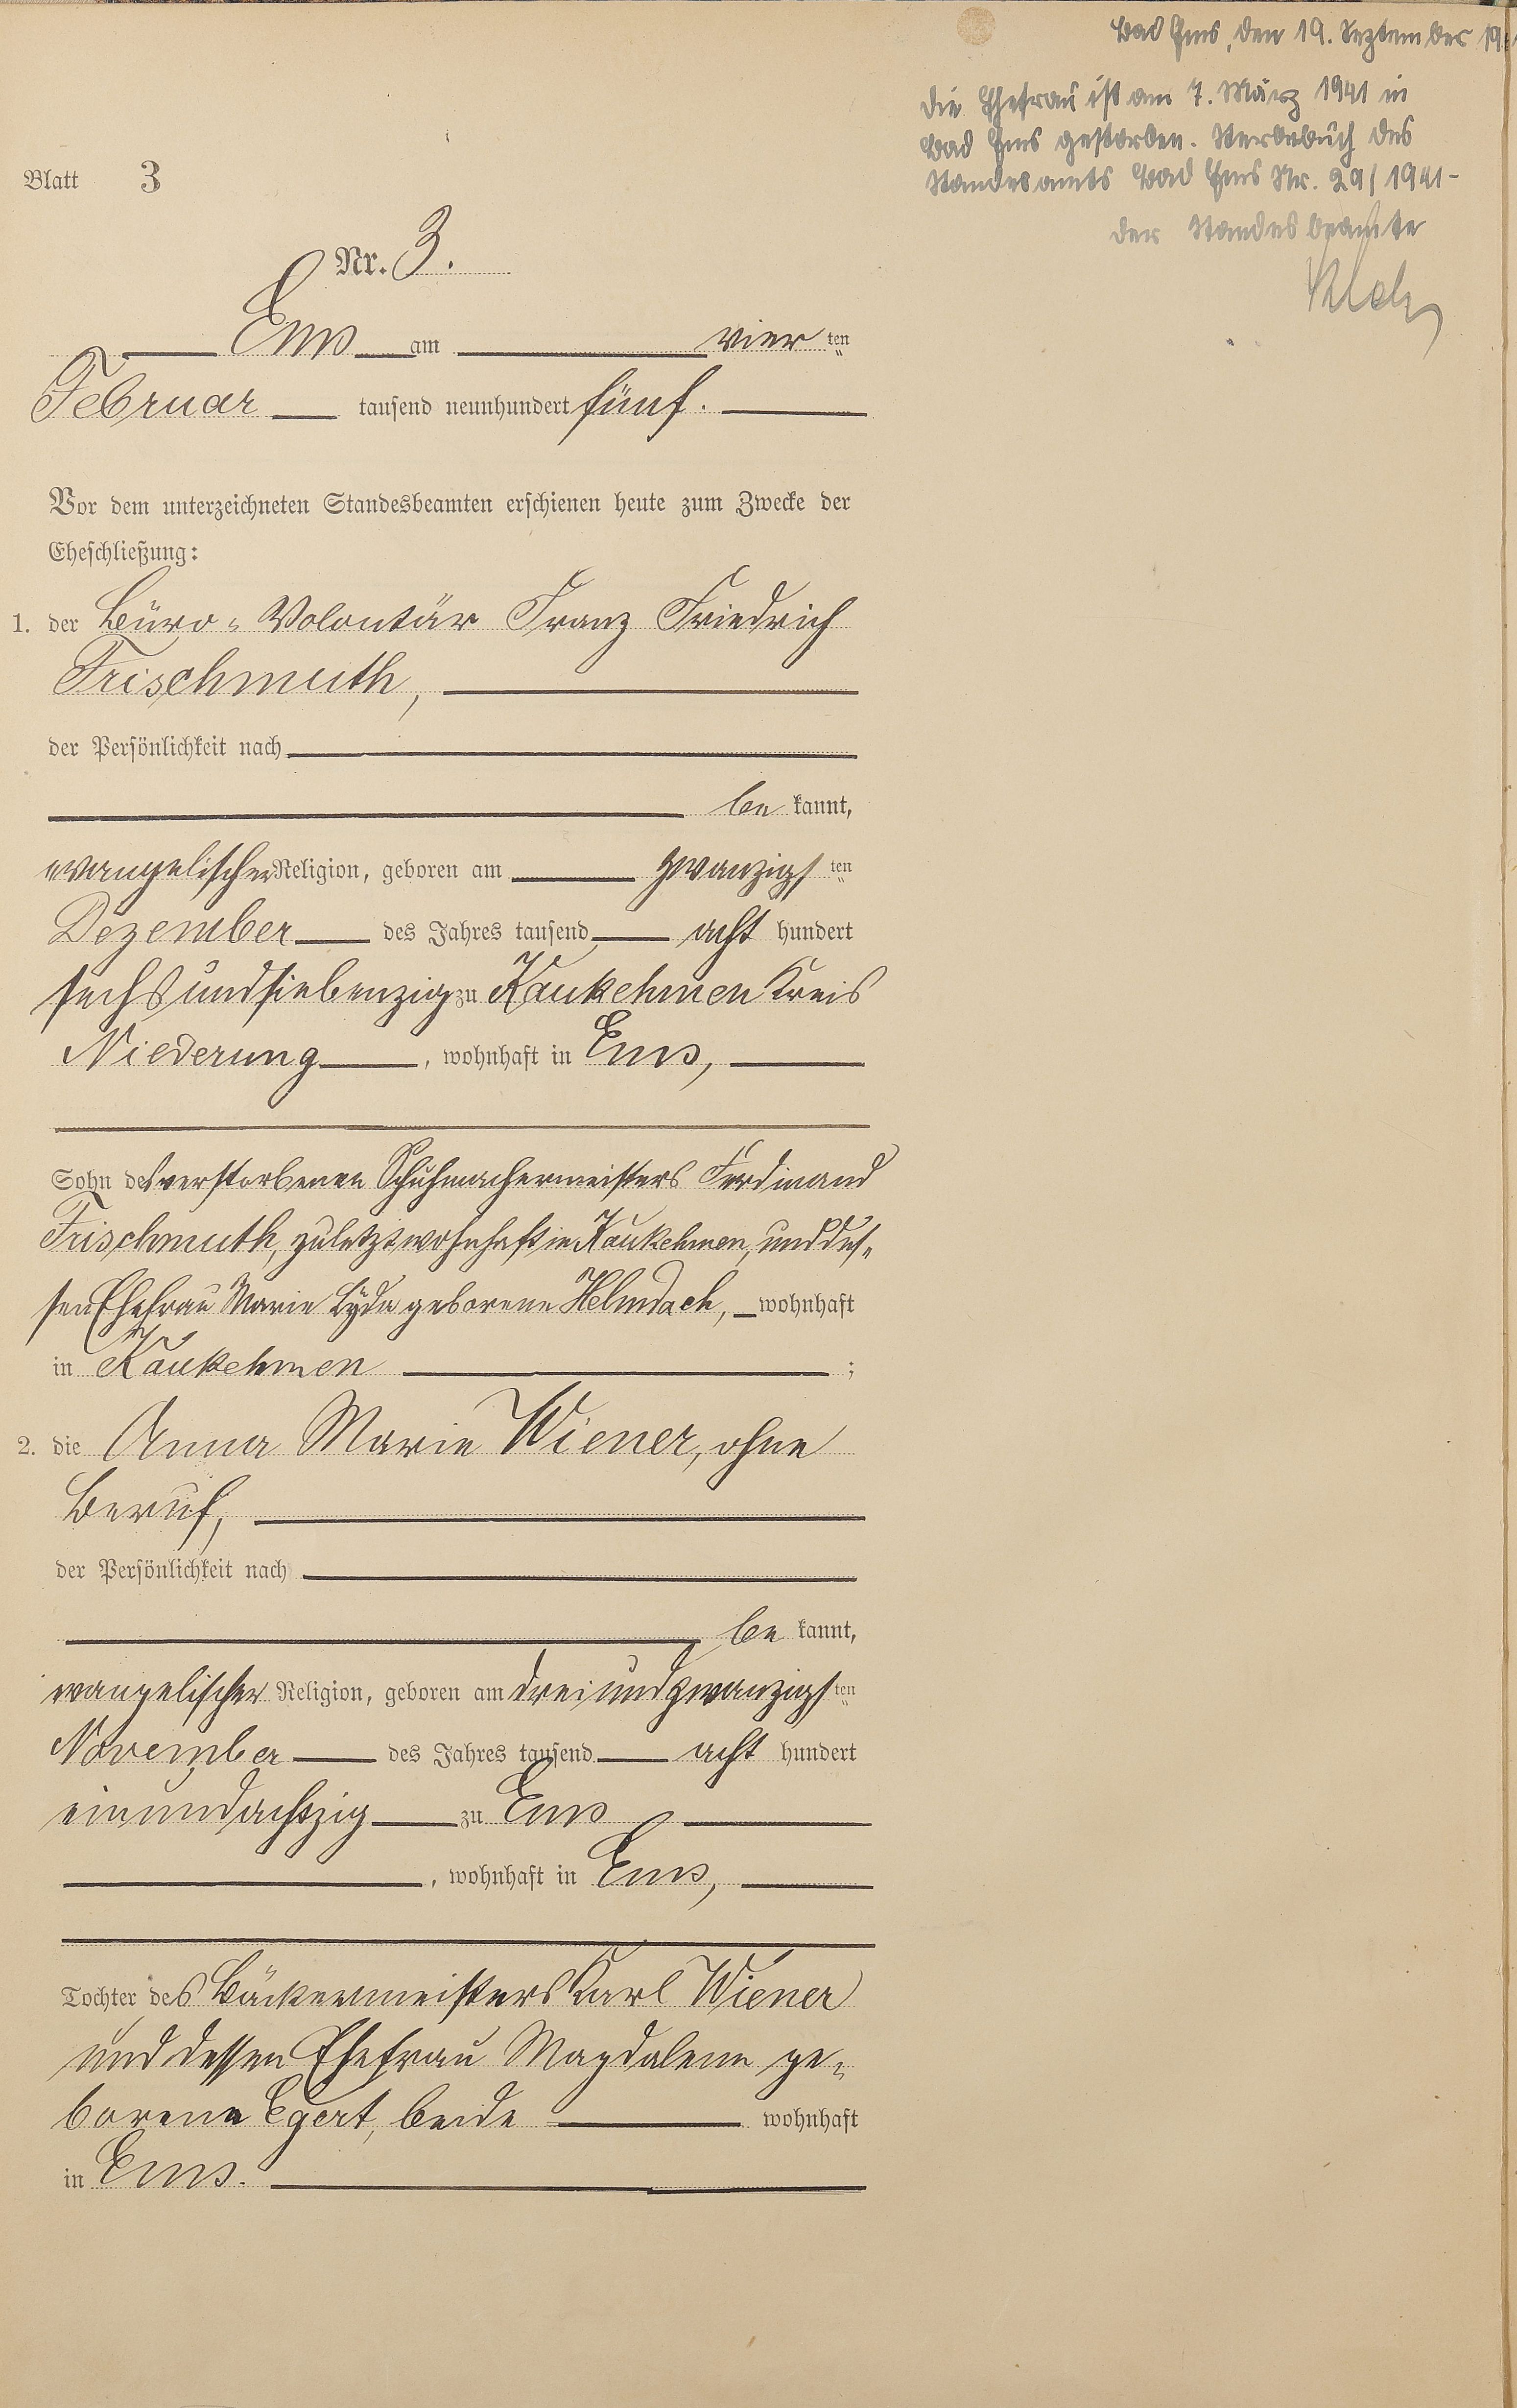 Bad Ems, den 19. September 19
Die Ehefrau ist am 7. März 1941 in
Bad Ems gestorben. Sterbebuch des
Standesamts Bad Ems Nr. 29/1941-
Der Standesbeamte
Blatt 3
Nr. 3.
Ems am vier ten
Februar tausend neunhundert fünf.
Vor dem unterzeichneten Standesbeamten erschienen heute zum Zwecke der
Eheschließung:
1. der Büro-Volontär Franz Friedrich
Frischmuth,
der Persönlichkeit nach
be kannt,
evangelischer Religion, geboren am zwanzigs ten
Dezember des Jahres tausend acht hundert
sechsundsiebenzig zu Kaukehmen Kreis
Niederung, wohnhaft in Ems,
Sohn des verstorbenen Schuhmachermeisters Ferdinand
Frischmuth, zuletzt wohnhaft in Kaukehmen, und des-
sen Ehefrau Marie Lyda geborene Helmdach, wohnhaft
in Kaukehmen ;
2. die Anna Marie Wiener, ohne
Beruf,
der Persönlichkeit nach
be kannt,
evangelischer Religion, geboren am dreiundzwanzigs ten
November des Jahres tausend acht hundert
einundachtzig zu Ems
, wohnhaft in Ems,
Tochter des Bäckermeisters Karl Wiener
und dessen Ehefrau Magdalene ge-
borene Egert, beide wohnhaft
in Ems.